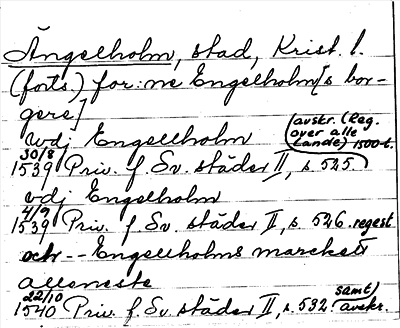 Ängelholm, stad, Krist. l.
(forts.) for:ne Engelholm[s bor-
gere]
wdj Engellholm (avskr. (Reg.
over alle
Lande) 1500-t.)
30/8
1539 Priv. f. Sv. städer II, s. 525.
vdj Engelholm
4/9
1539 Priv. f. Sv. städer II, s. 526. regest
och -- Engellholms marckett
alleneste
22/10
1540 Priv. f. Sv. städer II, s. 532. samt/
avskr.